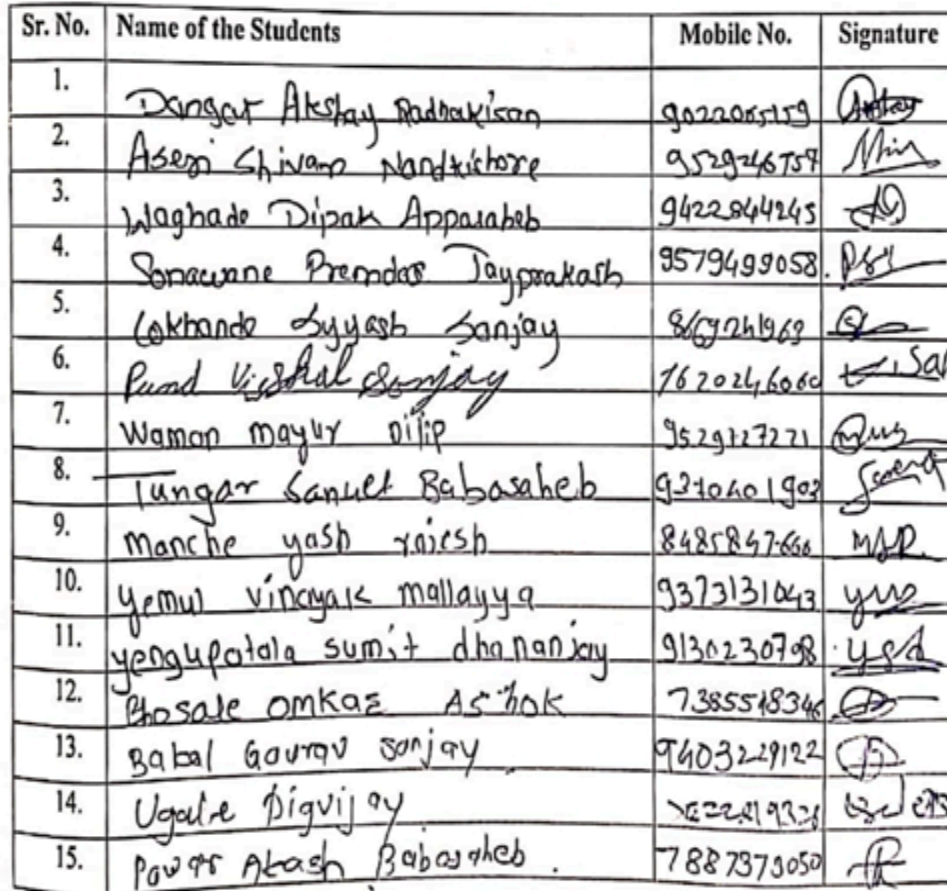 Sr. No. Name of the Students Mobile No. Signature
1. Dangat Akshay Radhakisan
2. Aseri Shivam Nandkishore
3. Waghade Dipak Appasaheb 9422844245
4. Sonawane Premdas Jayprakash 9579499058.
5. Lokhande Suyash Sanjay
6. Pund Vishal Sanjay 7620246060
7. Waman mayur Dilip 9529727271
8. Tungar Sanket Babasaheb 9370401903
9. manche yash rajesh 8485847666 MSR.
10. yemul vinayak mallayya 9373131043
11. yengupatala sumit dhananjay 9130230798 ysd
12. Bhosale OMKAR AShok 7385518346
13. Babal Gaurav sanjay 9403229122
14. Ugale Digvijay
15. Pawar Akash Babasaheb. 7887373050